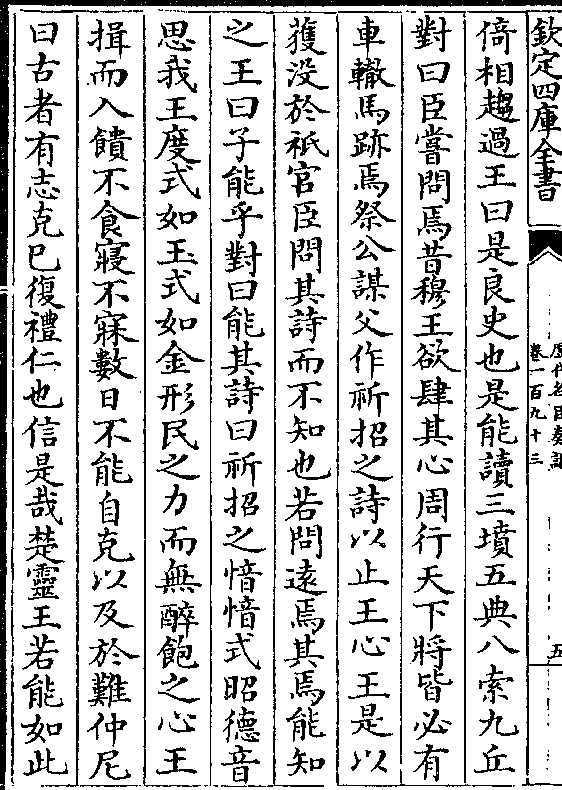 欽定四庫全書
歷代名臣奏議
卷一百九十三
五
倚相趨過王曰是良史也是能讀三墳五典八索九丘
對曰臣嘗問焉昔穆王欲肆其心周行天下將皆必有
車轍馬跡焉祭公謀父作祈招之詩以止王心王是以
獲没於祇官臣問其詩而不知也若問逺焉其焉能知
之王曰子能乎對曰能其詩曰祈招之愔愔式昭德音
思我王度式如玉式如金形民之力而無醉飽之心王
揖而入饋不食寢不寐數日不能自克以及於難仲尼
曰古者有志克己復禮仁也信是哉楚靈王若能如此